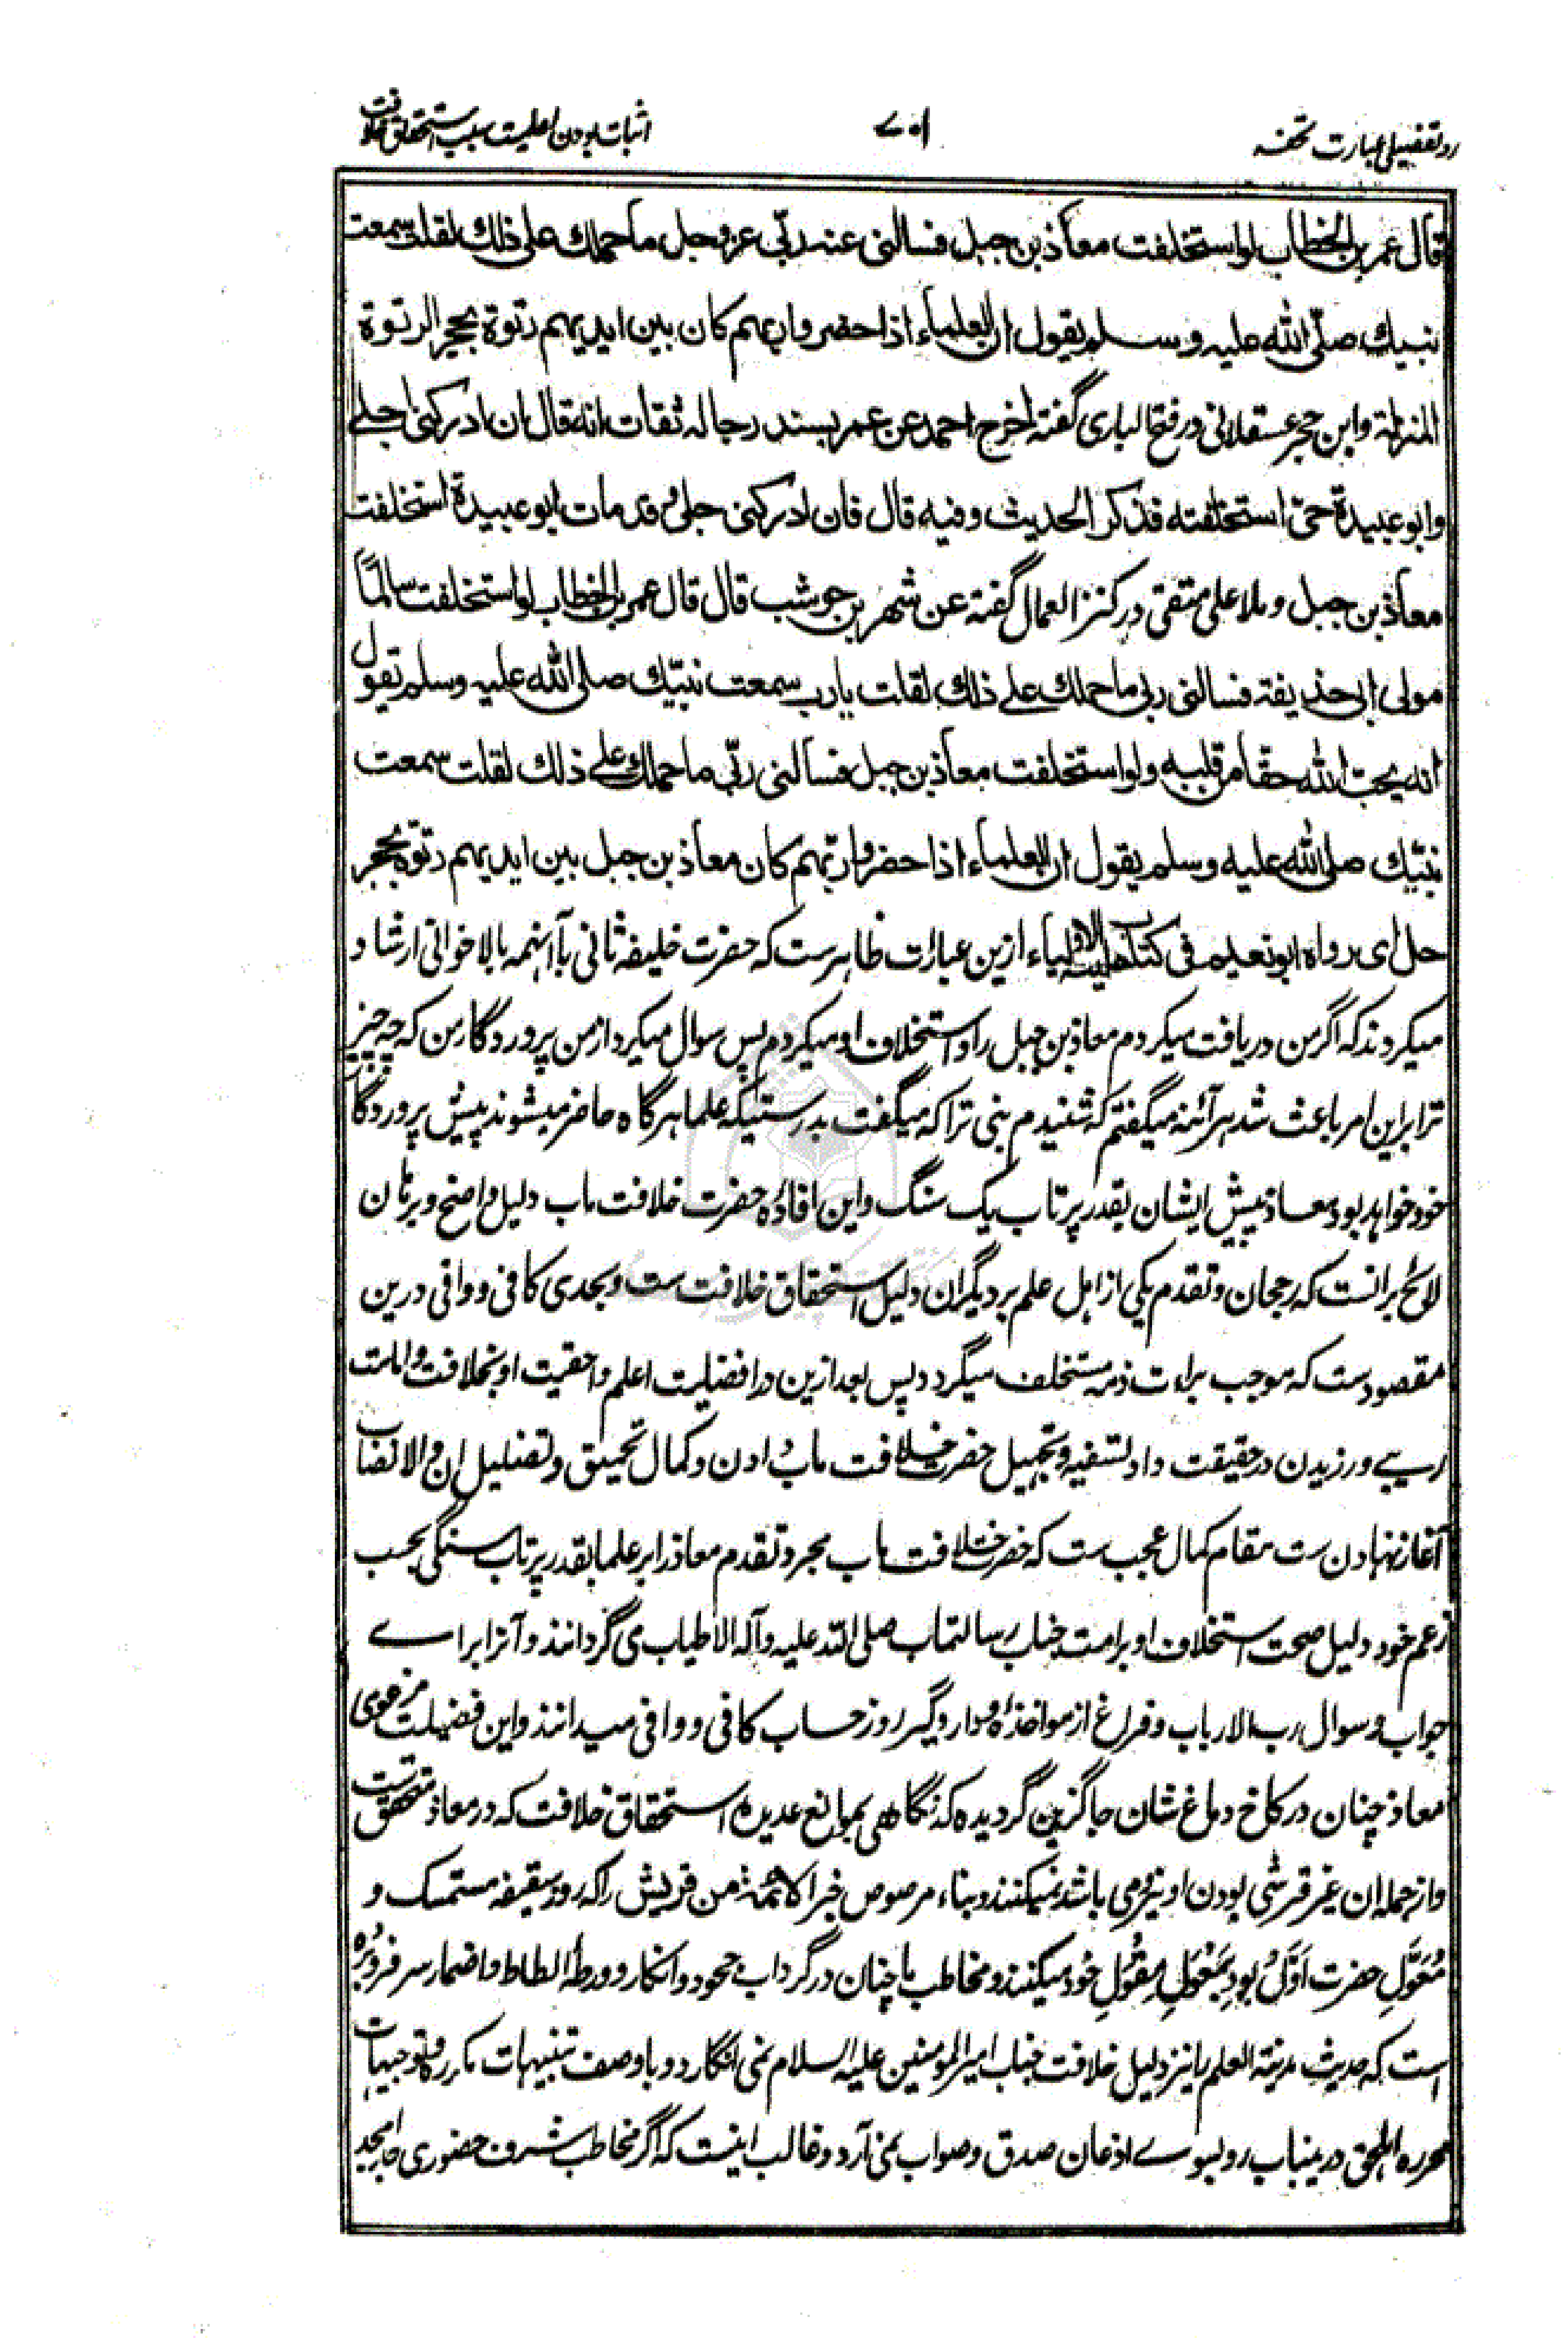 رد تفصیلی عبارت تحفه
۷۰۱
اثبات بودن اعلمیت سبب استحقاق خلافت
قال عمر بن الخطاب لو استخلفت معاذ بن جبل فسالنی عنه ربّی عزوجل ما حملك علی ذلك لقلت سمعت
نبیك صلّی الله علیه وسلم یقول ان العلماء اذا حضروا ربهم کان بین ایدیهم رتوة بحجر الرتوة
المنزلة وابن حجر عسقلانی در فتح الباری گفته اخرج احمد عن عمر بسند رجاله ثقات انه قال ان ادرکنی اجلے
وابو عبیدة حیّ استخلفته فذکر الحدیث وفیه قال فان ادرکنی جلی وقد مات ابو عبیدة استخلفت
معاذ بن جبل وملا علی متقی در کنز العمال گفته عن شهر بن حوشب قال قال عمر بن الخطاب لو استخلفت سالماً
مولی ابی حذیفة فسالنی ربی ما حملك علے ذلك لقلت یا رب سمعت نبیّك صلی الله علیه وسلم یقول
انه یحبّ الله حقا من قلبه ولو استخلفت معاذ بن جبل فسالنی ربّی ما حملك علے ذلك لقلت سمعت
نبیّك صلی الله علیه وسلم یقول ان العلماء اذا حضروا ربّهم کان معاذ بن جبل بین ایدیهم رتوة بحجر
حل ای رواه ابو نعیم فی کتاب حلیة الاولیاء ازین عبارات ظاهرست که حضرت خلیفه ثانی باآنهمه بالاخوانی ارشاد
میکردند که اگر من دریافت میکردم معاذ بن جبل را و استخلاف او میکردم پس سوال میکرد از من پروردگار من که چه چیز
ترا برین امر باعث شد هر آئنه میگفتم که شنیدم نبی ترا که میگفت بدرستیکه علما هرگاه حاضر میشوند پیش پروردگار
خود خواهد بود معاذ پیش ایشان بقدر پرتاب یک سنگ و این افادۀ حضرت خلافت ماب دلیل واضح و برهان
لائح برانست که رجحان و تقدم یکی از اهل علم بر دیگران دلیل استحقاق خلافت ست و بحدی کافی و وافی درین
مقصودست که موجب براءت ذمه مستخلف میگردد پس بعد ازین در افضلیت اعلم و احقیت او بخلافت و امامت
ریبے ورزیدن در حقیقت داد تسفیه و تجهیل حضرت خلافت ماب دادن و کمال تحمیق و تضلیل ان والا نصاب
آغاز نهادن ست مقام کمال عجب ست که حضرت خلافت ماب مجرد تقدم معاذ را بر علما بقدر پرتاب سنگی بحسب
زعم خود دلیل صحت استخلاف او بر امت جناب رسالتماب صلی الله علیه وآله الاطیاب می گردانند و آنرا براے
جواب و سوال رب الارباب و فراغ از مواخذه و داروگیر روز حساب کافی و وافی میدانند و این فضیلت مزعومی
معاذ چنان در کاخ دماغ شان جاگزین گردیده که نگاهی بموانع عدیدۀ استحقاق خلافت که در معاذ متحقق ست
و از جمله ان غیر قرشی بودن او نیز می باشد نمیکنند و بناء مرصوص خبر الائمة من قریش را که روز سقیفه مستمسک و
مُعَوَّلِ حضرت اَوّل بود بِمَعْوَلِ مِقْوَلِ خود میکنند و مخاطب ما چنان در گرداب جحود و انکار و ورطۀ الطاط و اضمار سر فروبرده
است که حدیث مدینة العلم را نیز دلیل خلافت جناب امیر المومنین علیه السلام نمی انگارد و باوصف تنبیهات مکرره و توجیهات
محرره اهلحق درینباب رو بسوے اذعان صدق و صواب نمی آرد و غالب اینست که اگر مخاطب شرف حضوری جد امجد